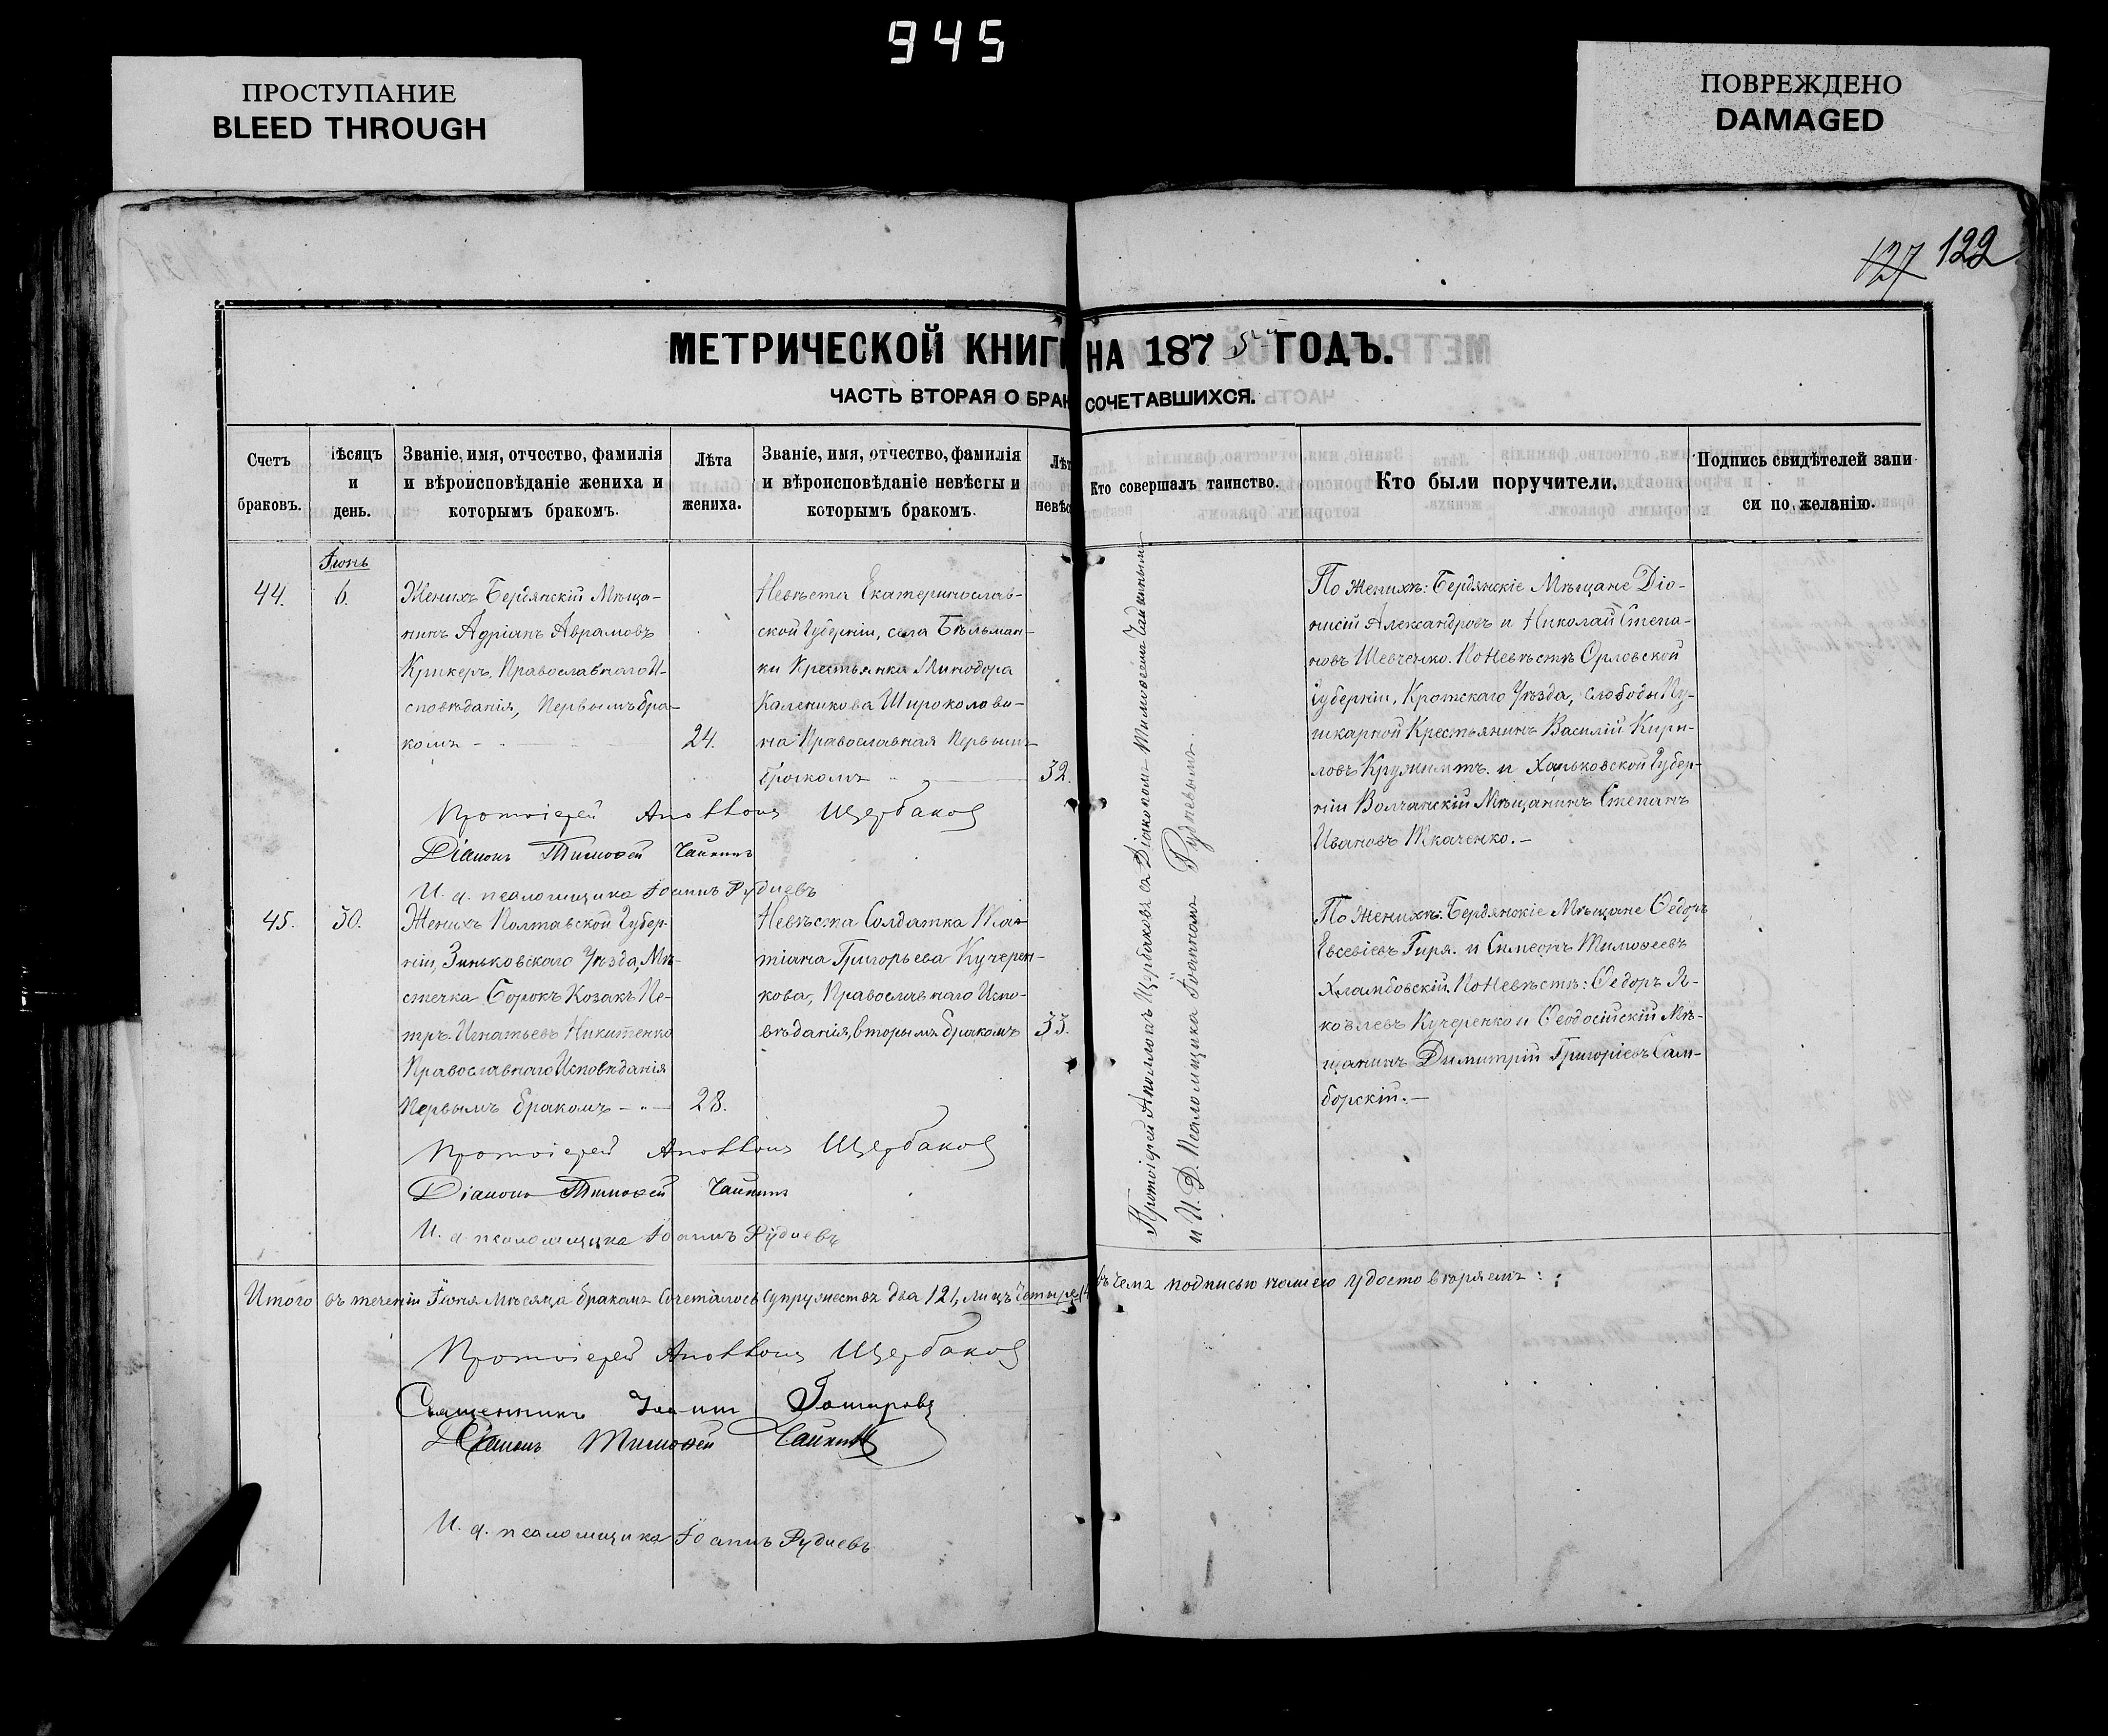 945
ПРОСТУПАНИЕ
BLEED THROUGH
ПОВРЕЖДЕНО
DAMAGED
127 122
МЕТРИЧЕСКОЙ КНИГИ НА 1875 ГОДЪ.
ЧАСТЬ ВТОРАЯ О БРАКОСОЧЕТАВШИХСЯ.
Счетъ браковъ.
Мѣсяцъ и день.
Званіе, имя, отчество, фамилія и вѣроисповѣданіе жениха и которымъ бракомъ.
Лѣта жениха.
Званіе, имя, отчество, фамилія и вѣроисповѣданіе невѣсты и которымъ бракомъ.
Лѣт невѣс
Кто совершалъ таинство.
Кто были поручители.
Подпись свидѣтелей запи
си по желанію.
Іюнь
44.
6.
Женихъ Бердянскій Мѣща-
нинъ Адріанъ Аврамовъ
Крикеръ, Православнаго И-
сповѣданія, Первымъ бра-
комъ -
24.
Невѣста Екатеринослав-
ской Губерніи, села Бѣльман-
ки Крестьянка Минодора
Каленикова Широколови-
на Православная Первымъ
бракомъ
32.
Протоіерей Аполлонъ Щербаковъ
Діаконъ Тимоѳей Чайкинъ
И. д. псаломщика Іоаннъ Рудневъ
Протоіерей Аполлонъ Щербаковъ съ Діакономъ Тимоѳеемъ Чайкинымъ
и И. Д. Псаломщика Іоанномъ Рудневымъ.
По Женихѣ: Бердянскіе Мѣщане Діо-
нисій Александровъ и Николай Степа-
новъ Шевченко. По Невѣстѣ Орловской
Губерніи, Кромскаго Уѣзда, слободы Пу-
шкарной Крестьянинъ Василій Кири-
ловъ и Харьковской Губер-
ніи Волчанскій Мѣщанинъ Степанъ
Ивановъ Ткаченко.-
45.
30.
Женихъ Полтавской Губер-
ніи, Зиньковскаго Уѣзда, Мѣ-
стечка Борокъ Козакъ Пе-
тръ Игнатьевъ Никитенко
Православнаго Исповѣданія
Первымъ бракомъ - " -
28.
Невѣста Солдатка Тат-
тіана Григорьева Кучерен-
кова, Православнаго Испо-
вѣданія, вторымъ бракомъ
33.
По Женихѣ: Бердянскіе Мѣщане Ѳедоръ
Евсевіевъ Гиря. и Симеонъ Тимоѳеевъ
Хламбовскій. По Невѣстѣ: Ѳедоръ Я-
ковлевъ Кучеренко и Ѳеодосійскій Мѣ-
щанинъ Димитрій Григоріевъ Сам-
борскій.-
Протоіерей Аполлонъ Щербаковъ
Діаконъ Тимоѳей Чайкинъ
И. д. псаломщика Іоаннъ Рудневъ
Итого въ теченіи Іюня Мѣсяца бракомъ Сочеталось Супружествъ два /2/, лицъ Четыре /4 въ чемъ подписью нашею удостовѣряемъ:
Протоіерей Аполлонъ Щербаковъ
Священникъ Іоаннъ
Діаконъ Тимоѳей Чайкинъ
И. д. псаломщика Іоаннъ Рудневъ